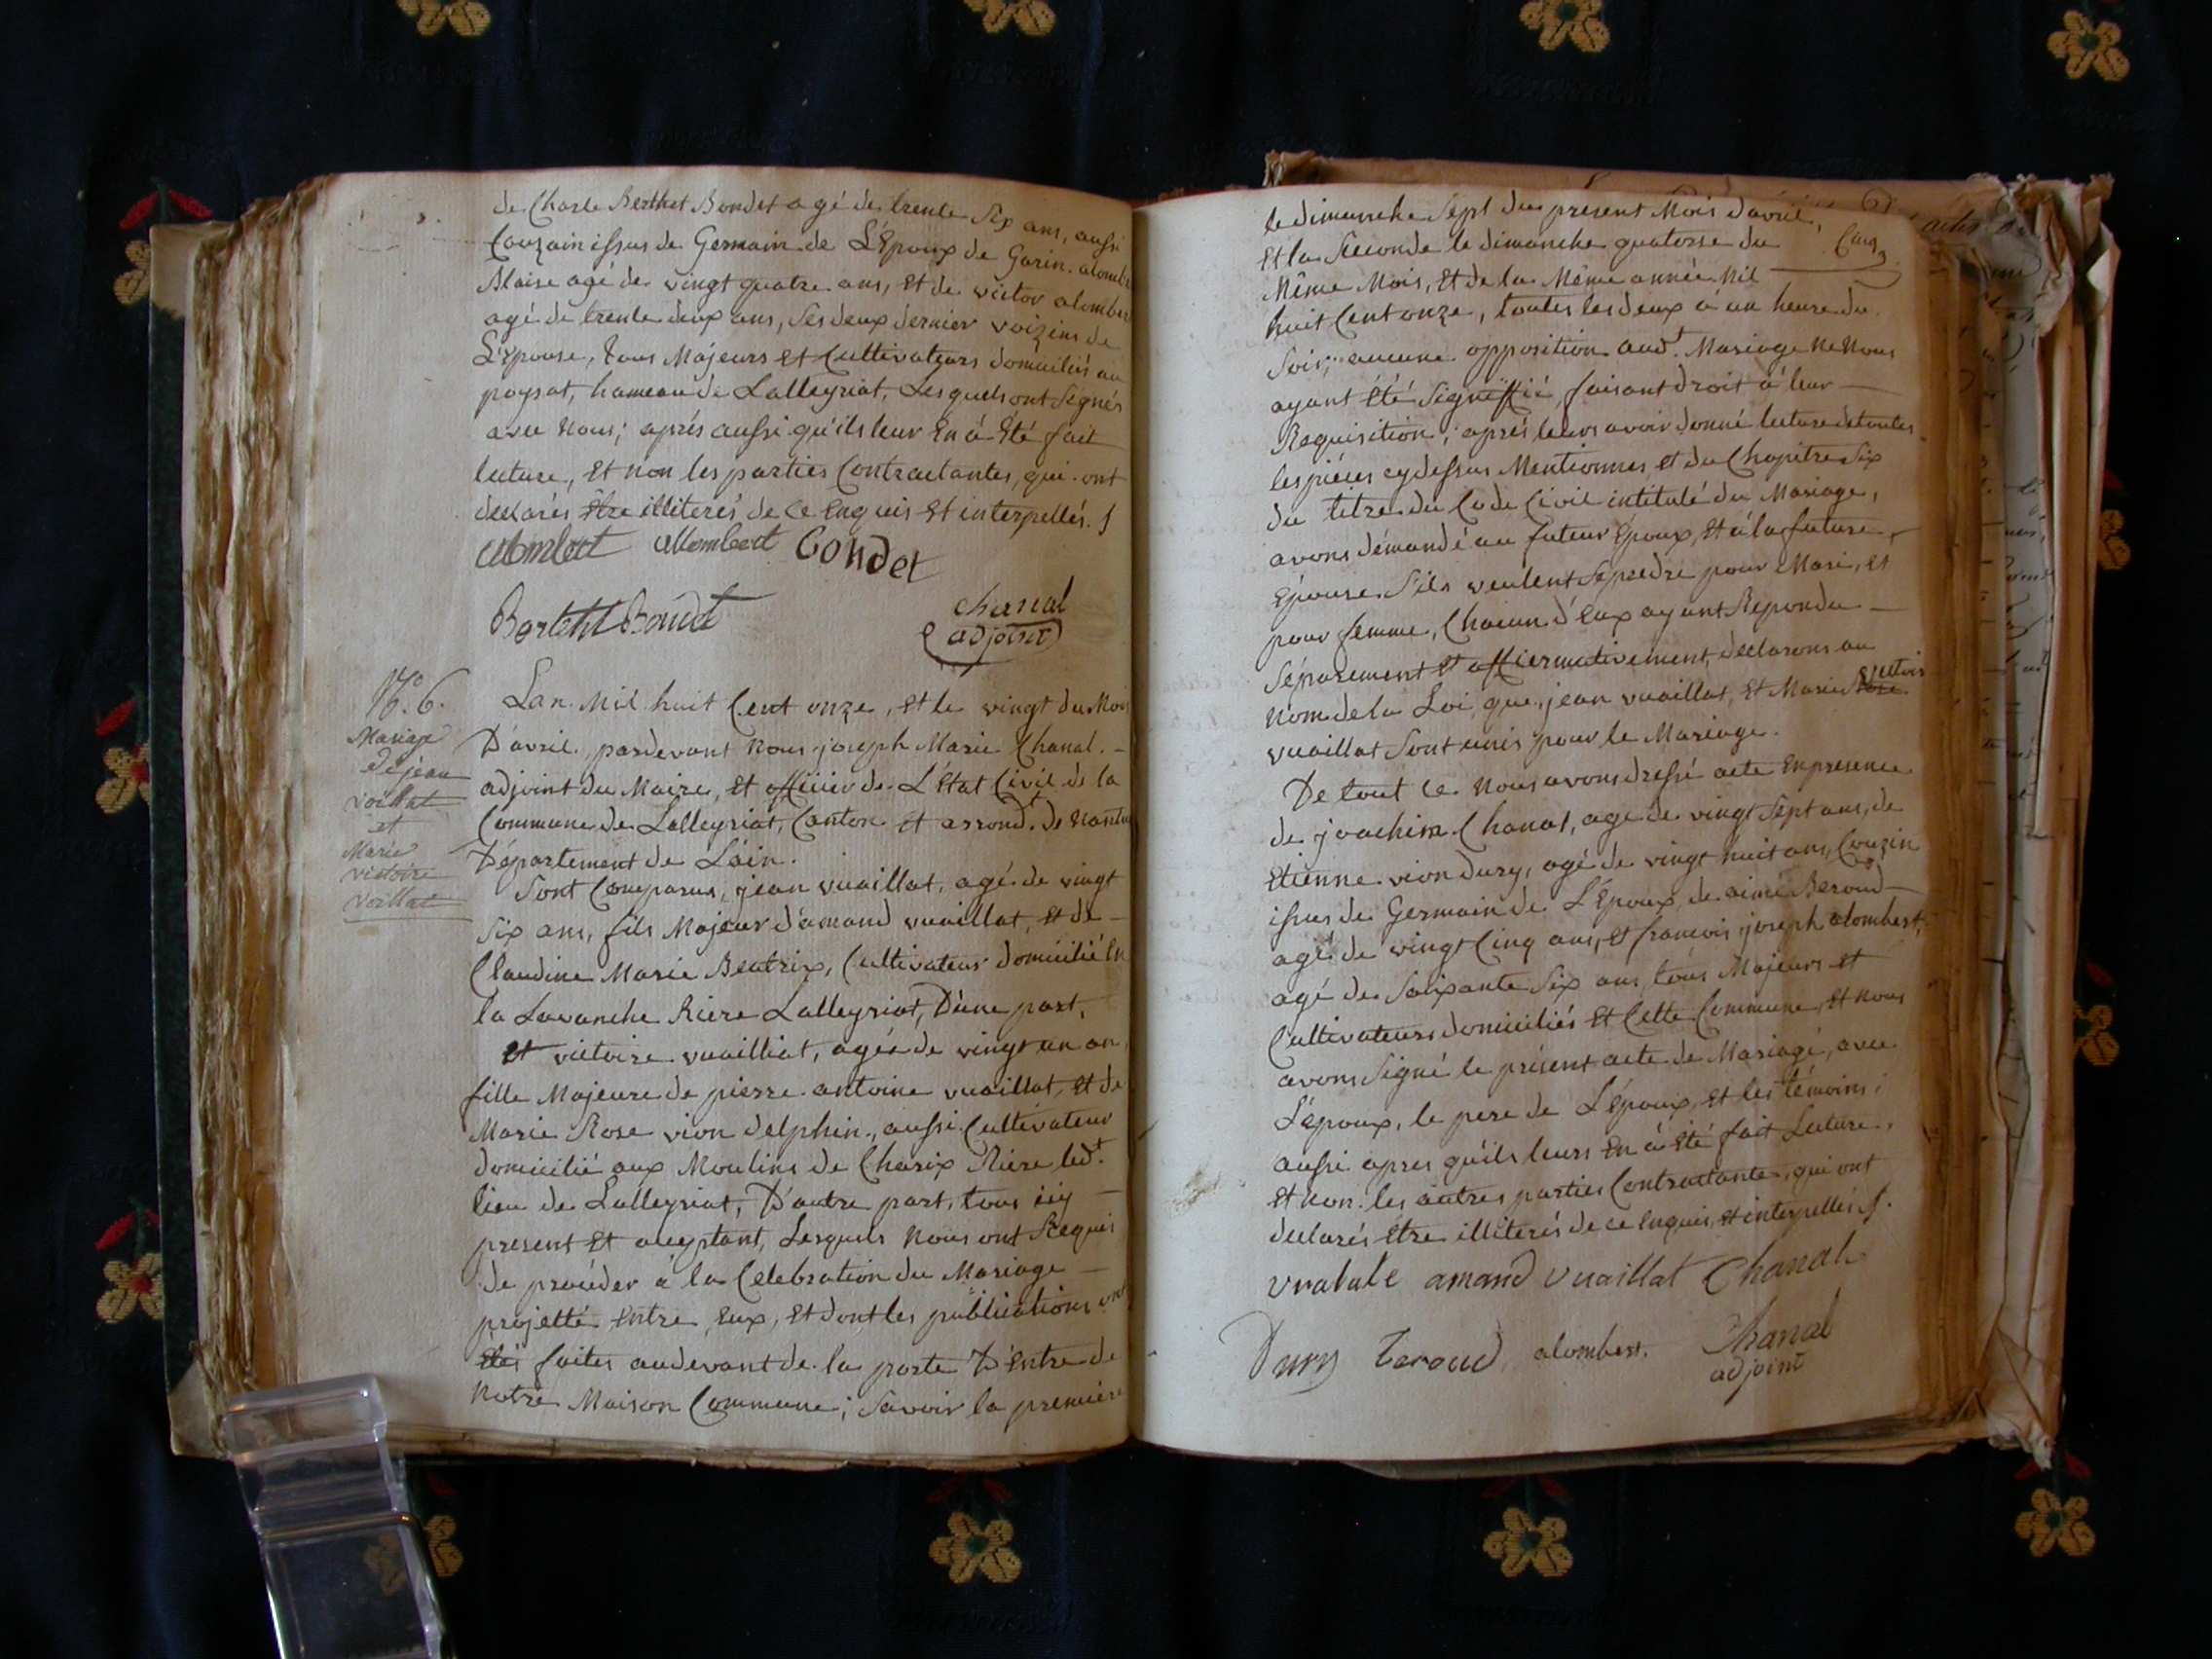 de Charle Berthet Bondet agé de trente Six ans, aussi
Couzain issus de Germain de L'Epoux de Garin. alombe
Blaise agé de vingt quatre ans, Et de victor alomber
agé de trente deux ans, Ses deux dernier voizins de
L'Epouse, tous Majeurs et Cultivateurs domiciliés au
poysat, hameau de Lalleyriat, Lesquels ont Signés
avec Nous; aprés aussi qu'ils leur En á Eté fait
lecture, Et non les parties Contractantes, qui ont
declarés Etre illiterés de Ce Enquis Et interpellés.
allombert Gondet
Bertet Bondet
Chanal
adjoint
N.o 6.
Mariage
de jean
voillat
et
Marie
victoire
voillat
Lan Mil huit Cent onze, Et le vingt du Mois
D'avril, pardevant Nous joseph Marie Chanal.
adjoint du Maire, Et officier de L'Etat Civil de la
Commune de Lalleyriat, Canton et arrond.t de Nantu
Département de L'ain.
Sont Comparus, jean vuaillat, agé de vingt
Six ans, fils Majeur d'amand vuaillat, Et de
Claudine Marie Beatrix, Cultivateur domicilié En
la Lavanche Riere Lalleyriat, D'une part,
Et victoire vuailliat, agée de vingt un an,
fille Majeure de pierre antoine vuaillat, Et de
Marie Rose vion delphin, aussi Cultivateur
domicilié aux Moulins de Charix Riere led.t
lieu de Lalleyriat, D'autre part, tous icy
present Et acceptant, Lesquels Nous ont Requis
de procéder á la Célebration du Mariage
projetté Entre Eux, Et dont les publications ont
Etés faites audevant de la porte D'Entre de
Notre Maison Commune; Savoir la premiére
le dimanche Sept du présent Mois d'avril,
Et la Seconde le dimanche quatorse du
Même Mois, Et de la Même année Mil
huit Cent onze, toutes les deux á un heure du
Soir; aucune opposition aud.t Mariage Ne Nous
ayant Eté Signiffié, faisant droit á leur
Requisition; aprés leurs avoir donné lecture de toutes
les piéces cy dessus Mentionnes, et du Chapitre Six
du titre du Code Civil intitulé du Mariage,
avons démandé au futeur Epoux, Et á la future
Epouse S'ils veulent Se predre pour Mari, Et
pour femme, Chacun d'Eux ayant Repondu
Séparement Et affiermativement, declarons au
Nom de la Loi, que jean vuaillat, Et Marie victoir
vuaillat Sont unis pour le Mariage.
De tout Ce Nous avons dressé acte En presence
de joachim Chanal, age de vingt Sept ans, de
Etienne vion dury, agé de vingt huit ans, Couzin
issus de Germain de L'Epoux, de aimé Beroud
agé de vingt Cinq ans, Et francois joseph alombert,
agé de Soixante Six ans, tous Majeurs et
Cultivateurs domiciliés Et Cette Commune, Et Nous
avons Signé le présent acte de Mariage, avec
L'époux, le pere de L'époux, Et les témoins;
aussi apres qu'ils leurs En á Eté fait Lecture,
Et Non les autres parties Contractante, qui ont
declarés Etre illiterés de ce Enquis, Et interpellés.
amand vuaillat Chanal
Dury Beroud alombert. Chanal
adjoint